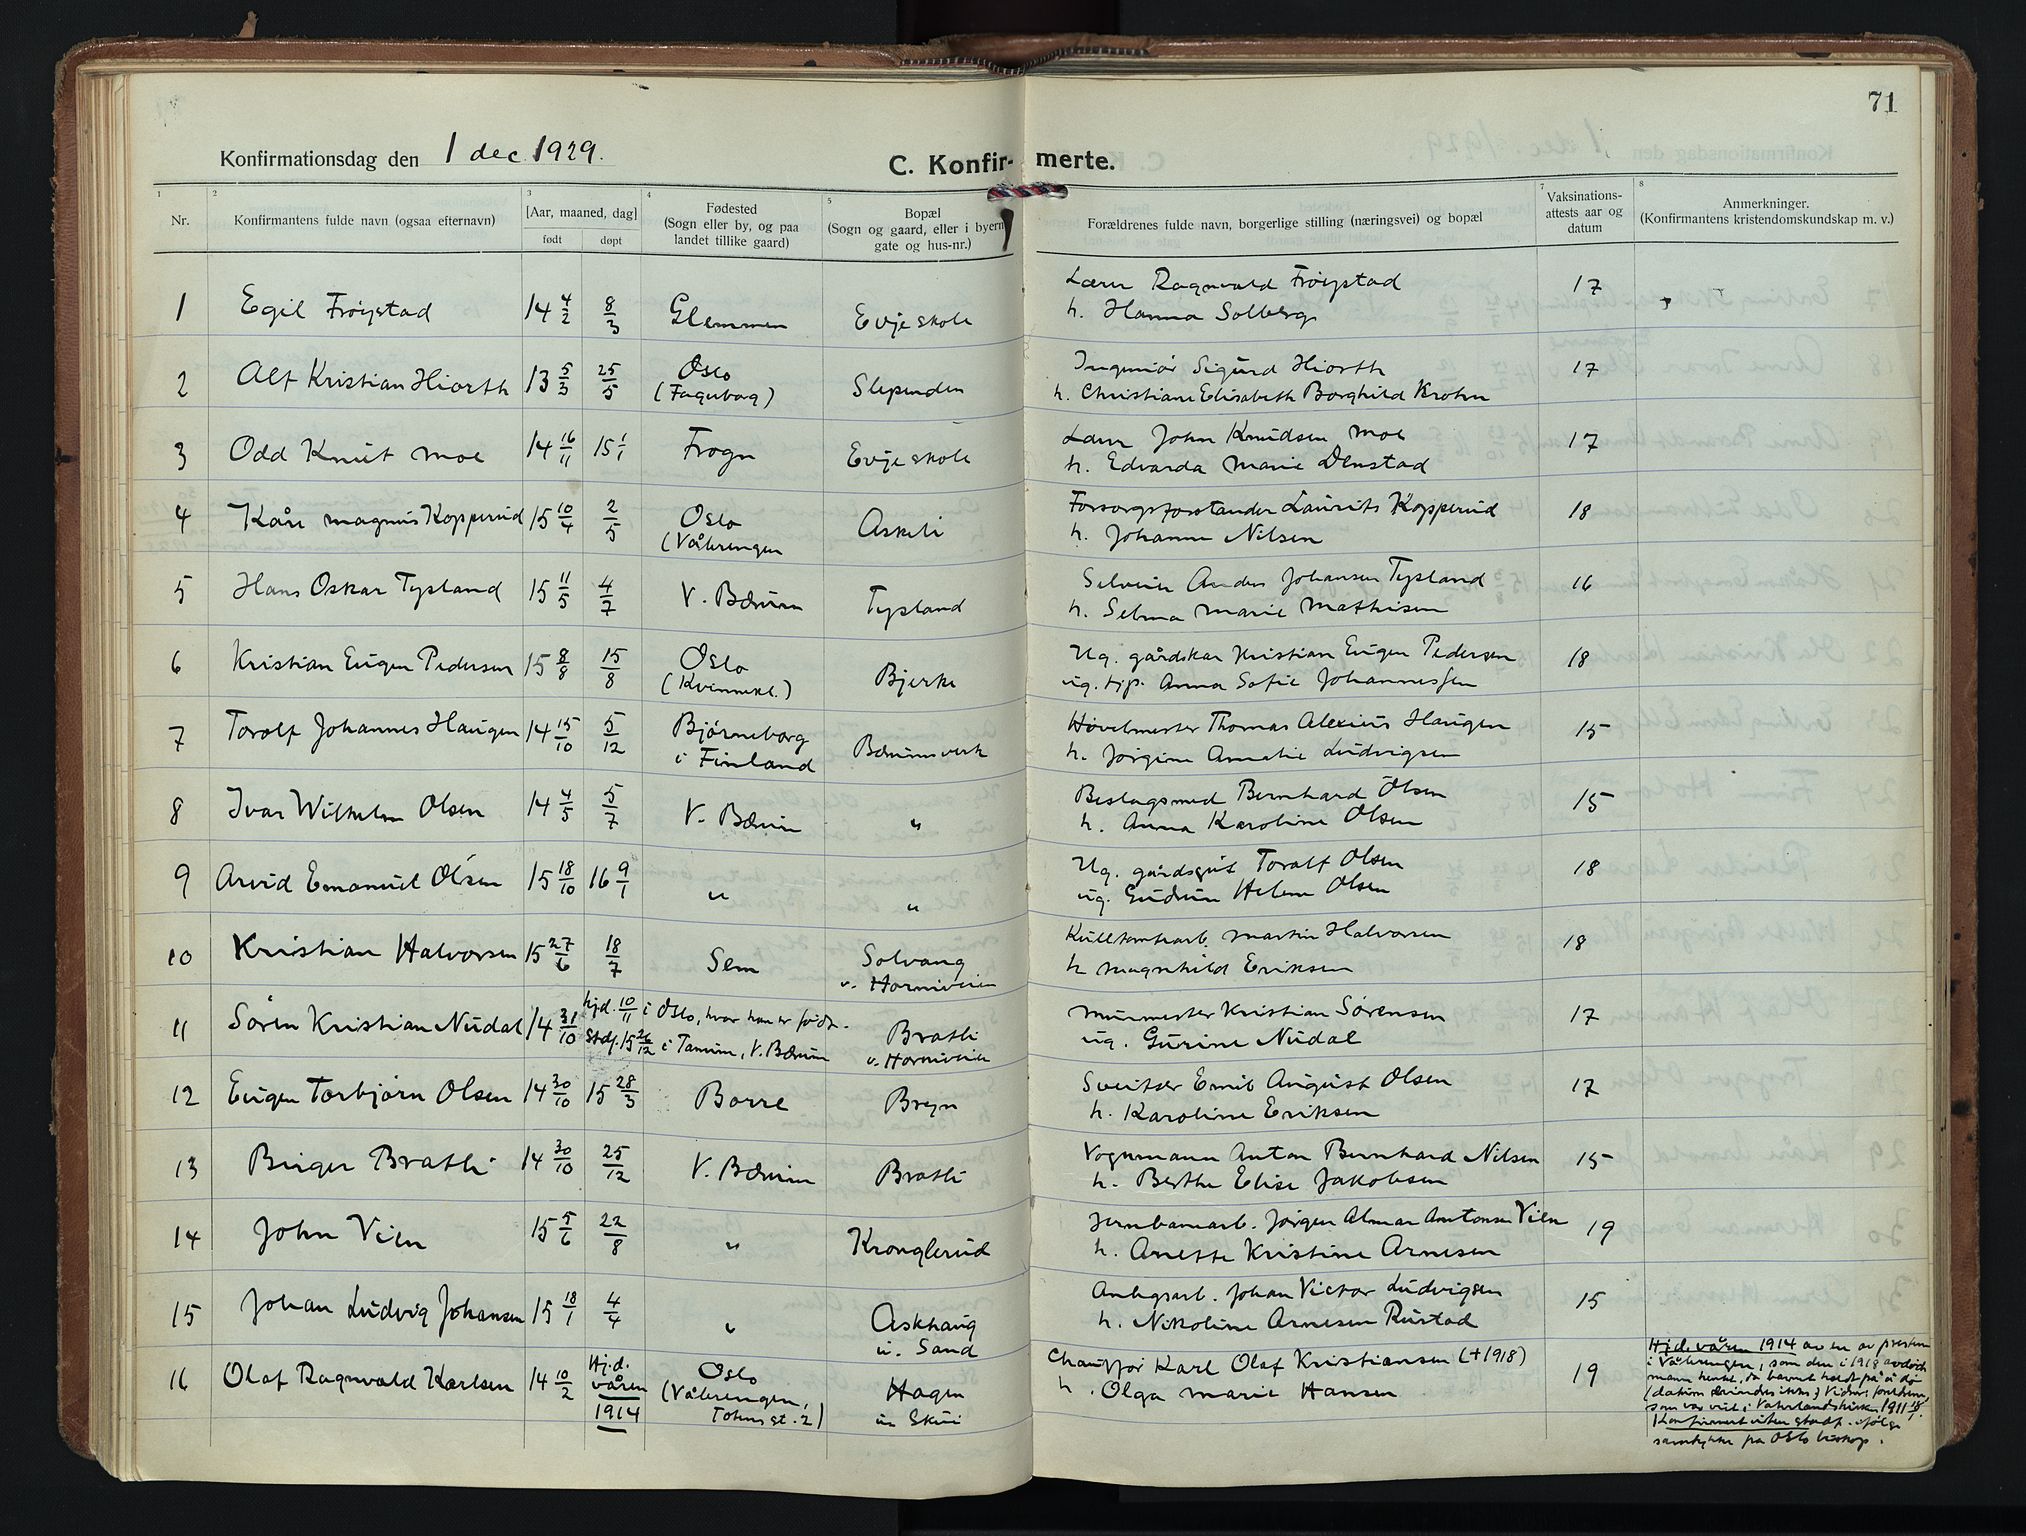 71
Konfirmationsdag den 1 dec. 1929.
C. Konfir- merte.
1 2 3 4 5 7 8
Nr.
Konfirmantens fulde navn (ogsaa efternavn)
[Aar, maaned, dag]
født døpt
Fødested
(Sogn eller by, og paa
landet tillike gaard)
Bopæl
(Sogn og gaard, eller i byern
gate og hus-nr.)
Forældrenes fulde navn, borgerlige stilling (næringsvei) og bopæl
Vaksinations-
attests aar og
datum
Anmerkninger.
(Konfirmantens kristendomskundskap m. v.)
1 Egil Frøystad 14 4/2 8/3 Glemmen Evje skole
Lærer Ragnvald Frøystad 17
h. Hanna Solberg
2 Alf Kristian Hiorth 13 5/3 25/5 Oslo
(Fagerborg) Slependen
Ingeniør Sigurd Hiorth 17
h. Christiane Elisabeth Borghild Krohn
3 Odd Knut Moe 14 16/11 15 1/1 Frogn Evje skole
Lærer John Knudsen Moe 17
h. Edvarda Marie Denstad
4 Kåre Magnus Kopperud 15 10/4 2/5 Oslo
(Vålerengen Askeli
Forsorgsforstander Laurits Kopperud 18
h. Johanne Nilsen
5 Hans Oskar Tysland 15 11/5 4/7 V. Bærum Tysland
Selveier Anders Johansen Tysland 16
h. Selma Marie Mathisen
6 Kristian Eugen Pedersen 15 8/8 15/8 Oslo
(Kvinnekl.) Bjerke
Ug. gårdskar Kristian Eugen Pedersen 18
ug. tjp. Anna Sofie Johannessen
7 Toralf Johannes Haugen 14 15/10 5/12 Bjørneborg
i Finland Bærumsverk
Høvelmester Thomas Alexius Haugen 15
h. Jørgine Amalie Ludvigsen
8 Ivar Wilhelm Olsen 14 4/5 5/7 V. Bærum "
Beslagsmed Bernhard Olsen 15
h. Anna Karoline Olsen
9 Arvid Emanuel Olsen 15 18/10 16 9/1 " "
Ug. gårdsgut Toralf Olsen 18
ug. Gudrun Helene Olsen
10 Kristian Halvorsen 15 27/6 18/7 Sem Solvang
v. Horniveien
Kulltomtarb. Martin Halvorsen 18
h Magnhild Eriksen
11 Søren Kristian Nudal 14 31/10 hjd. 10/11 i Oslo, hvor han er født.
Stdf. 15 26/12 i Tanum, V. Bærum Bratli
v. Horniveien
Murmester Kristian Sørensen 17
ug. Gurine Nudal
12 Eugen Torbjørn Olsen 14 30/10 15 28/3 Borre Bryn
Sveitser Emil August Olsen 17
h. Karoline Eriksen
13 Birger Bratli 14 30/10 25/12 V. Bærum Bratli
Vognmann Anton Bernhard Nilsen 15
h. Berthe Elise Jakobsen
14 John Vien 15 5/6 22/8 " Kronglerud
Jernbanearb. Jørgen Almar Antonsen Vien 19
h. Anette Kristine Arnesen
15 Johan Ludvig Johansen 15 18/1 4/4 " Askhaug
u. Sand
Anlegsarb. Johan Victor Ludvigsen 15
h. Nikoline Arnesen Rustad
16 Olaf Ragnvald Karlsen 14 10/2 Hj.d.
våren
1914 Oslo
(Vålerengen,
Tohns gt. 2) Hagen
u. Skui
Chauffør Karl Olaf Kristiansen (+1918) 19
h. Olga Marie Hansen
Hj.d. våren 1914 av en av prestene
i Vålerengen, som den i 1918 avdøde
mann hentet, da barnet holdt på å dø
(datum erindres ikke) Vidner: foreldrene,
som var viet i Vaterlandskirken 1911 18/1.
Konfirmert uten stadf. ifølge
samtykke fra Oslo biskop.